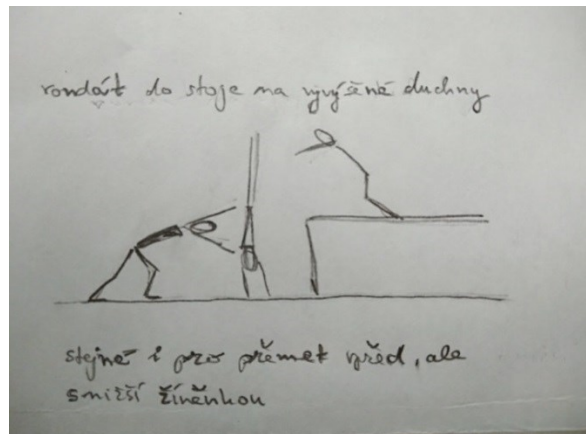 rondát do stoje na vyvýšené duchny
stejně i pro přemet vpřed, ale
s nižší žíněnkou